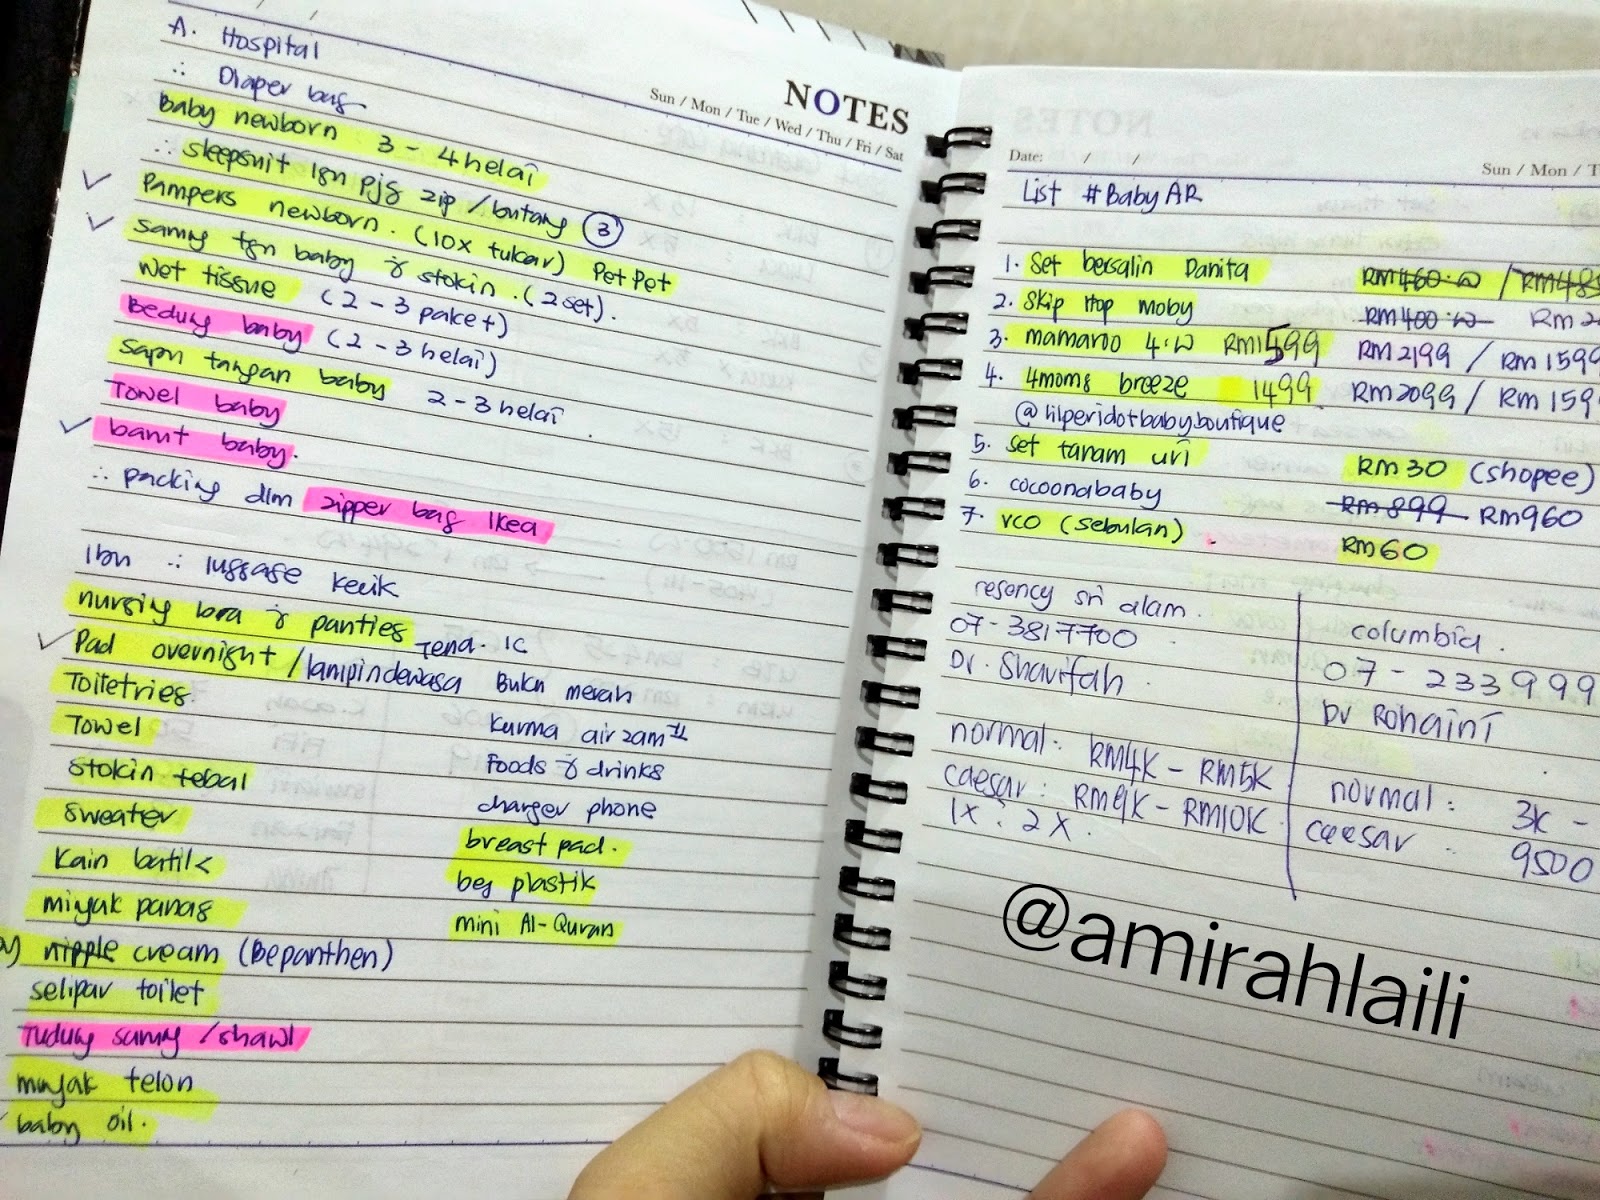 A. Hospital
NOTES
Sun / Mon / Tue / Wed / Thu / Fri / Sat
∴ Diaper bag
Baby newborn 3 - 4 helai
∴ sleepsuit lgn pjg zip / butang ③
✓ Pampers newborn. (10x tukar) PetPet
✓ Sarung tgn baby & stokin. (2 set).
Wet tissue (2 - 3 paket)
Bedung baby (2 - 3 helai)
Sapu tangan baby 2 - 3 helai.
Towel baby
✓ bantt baby.
∴ packing dlm zipper bag Ikea
Ibu ∴ luggage kecik
nursing bra & panties
✓ Pad overnight / lampin dewasa
Toiletries.
Towel
Stokin tebal
Sweater
Kain batik
minyak panas
nipple cream (Bepanthen)
selipar toilet
Tudung sarung / shawl
minyak telon
baby oil.
IC
Buku merah
Kurma air zam²
Foods & drinks
charger phone
breast pad.
beg plastik
mini Al-Quran
Date: / /
Sun / Mon / T
List #BabyAR
1. Set bersalin Danita RM460.00 / RM485
2. Skip Hop moby RM400.00 RM2
3. mamaroo 4.0 RM1599 RM2199 / RM1599
4. 4moms breeze 1499 RM2099 / RM159
@lilperidotbabyboutique
5. set tanam uri RM30 (shopee)
6. cocoonababy RM899 RM960
7. VCO (sebulan) RM60
regency sri alam.
07-3817700
Dr. Sharifah.
normal: RM4K - RM5K
caesar: RM9K - RM10K
1x : 2x.
columbia.
07 - 233 999
Dr Rohaini
normal: 3K -
caesar 9500
@amirahlaili